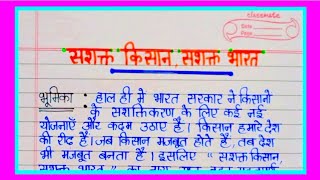 classmate
Date
Page
सशक्त किसान, सशक्त भारत
भूमिका : हाल ही मे भारत सरकार ने किसानो
के सशक्तिकरण के लिए कई नई
योजनाएँ और कदम उठाए है। किसान हमारे देश
की रीढ़ है। जब किसान मजबूत होते है, तब देश
भी मजबूत बनता है। इसलिए " सशक्त किसान,
सशक्त भारत " का नारा